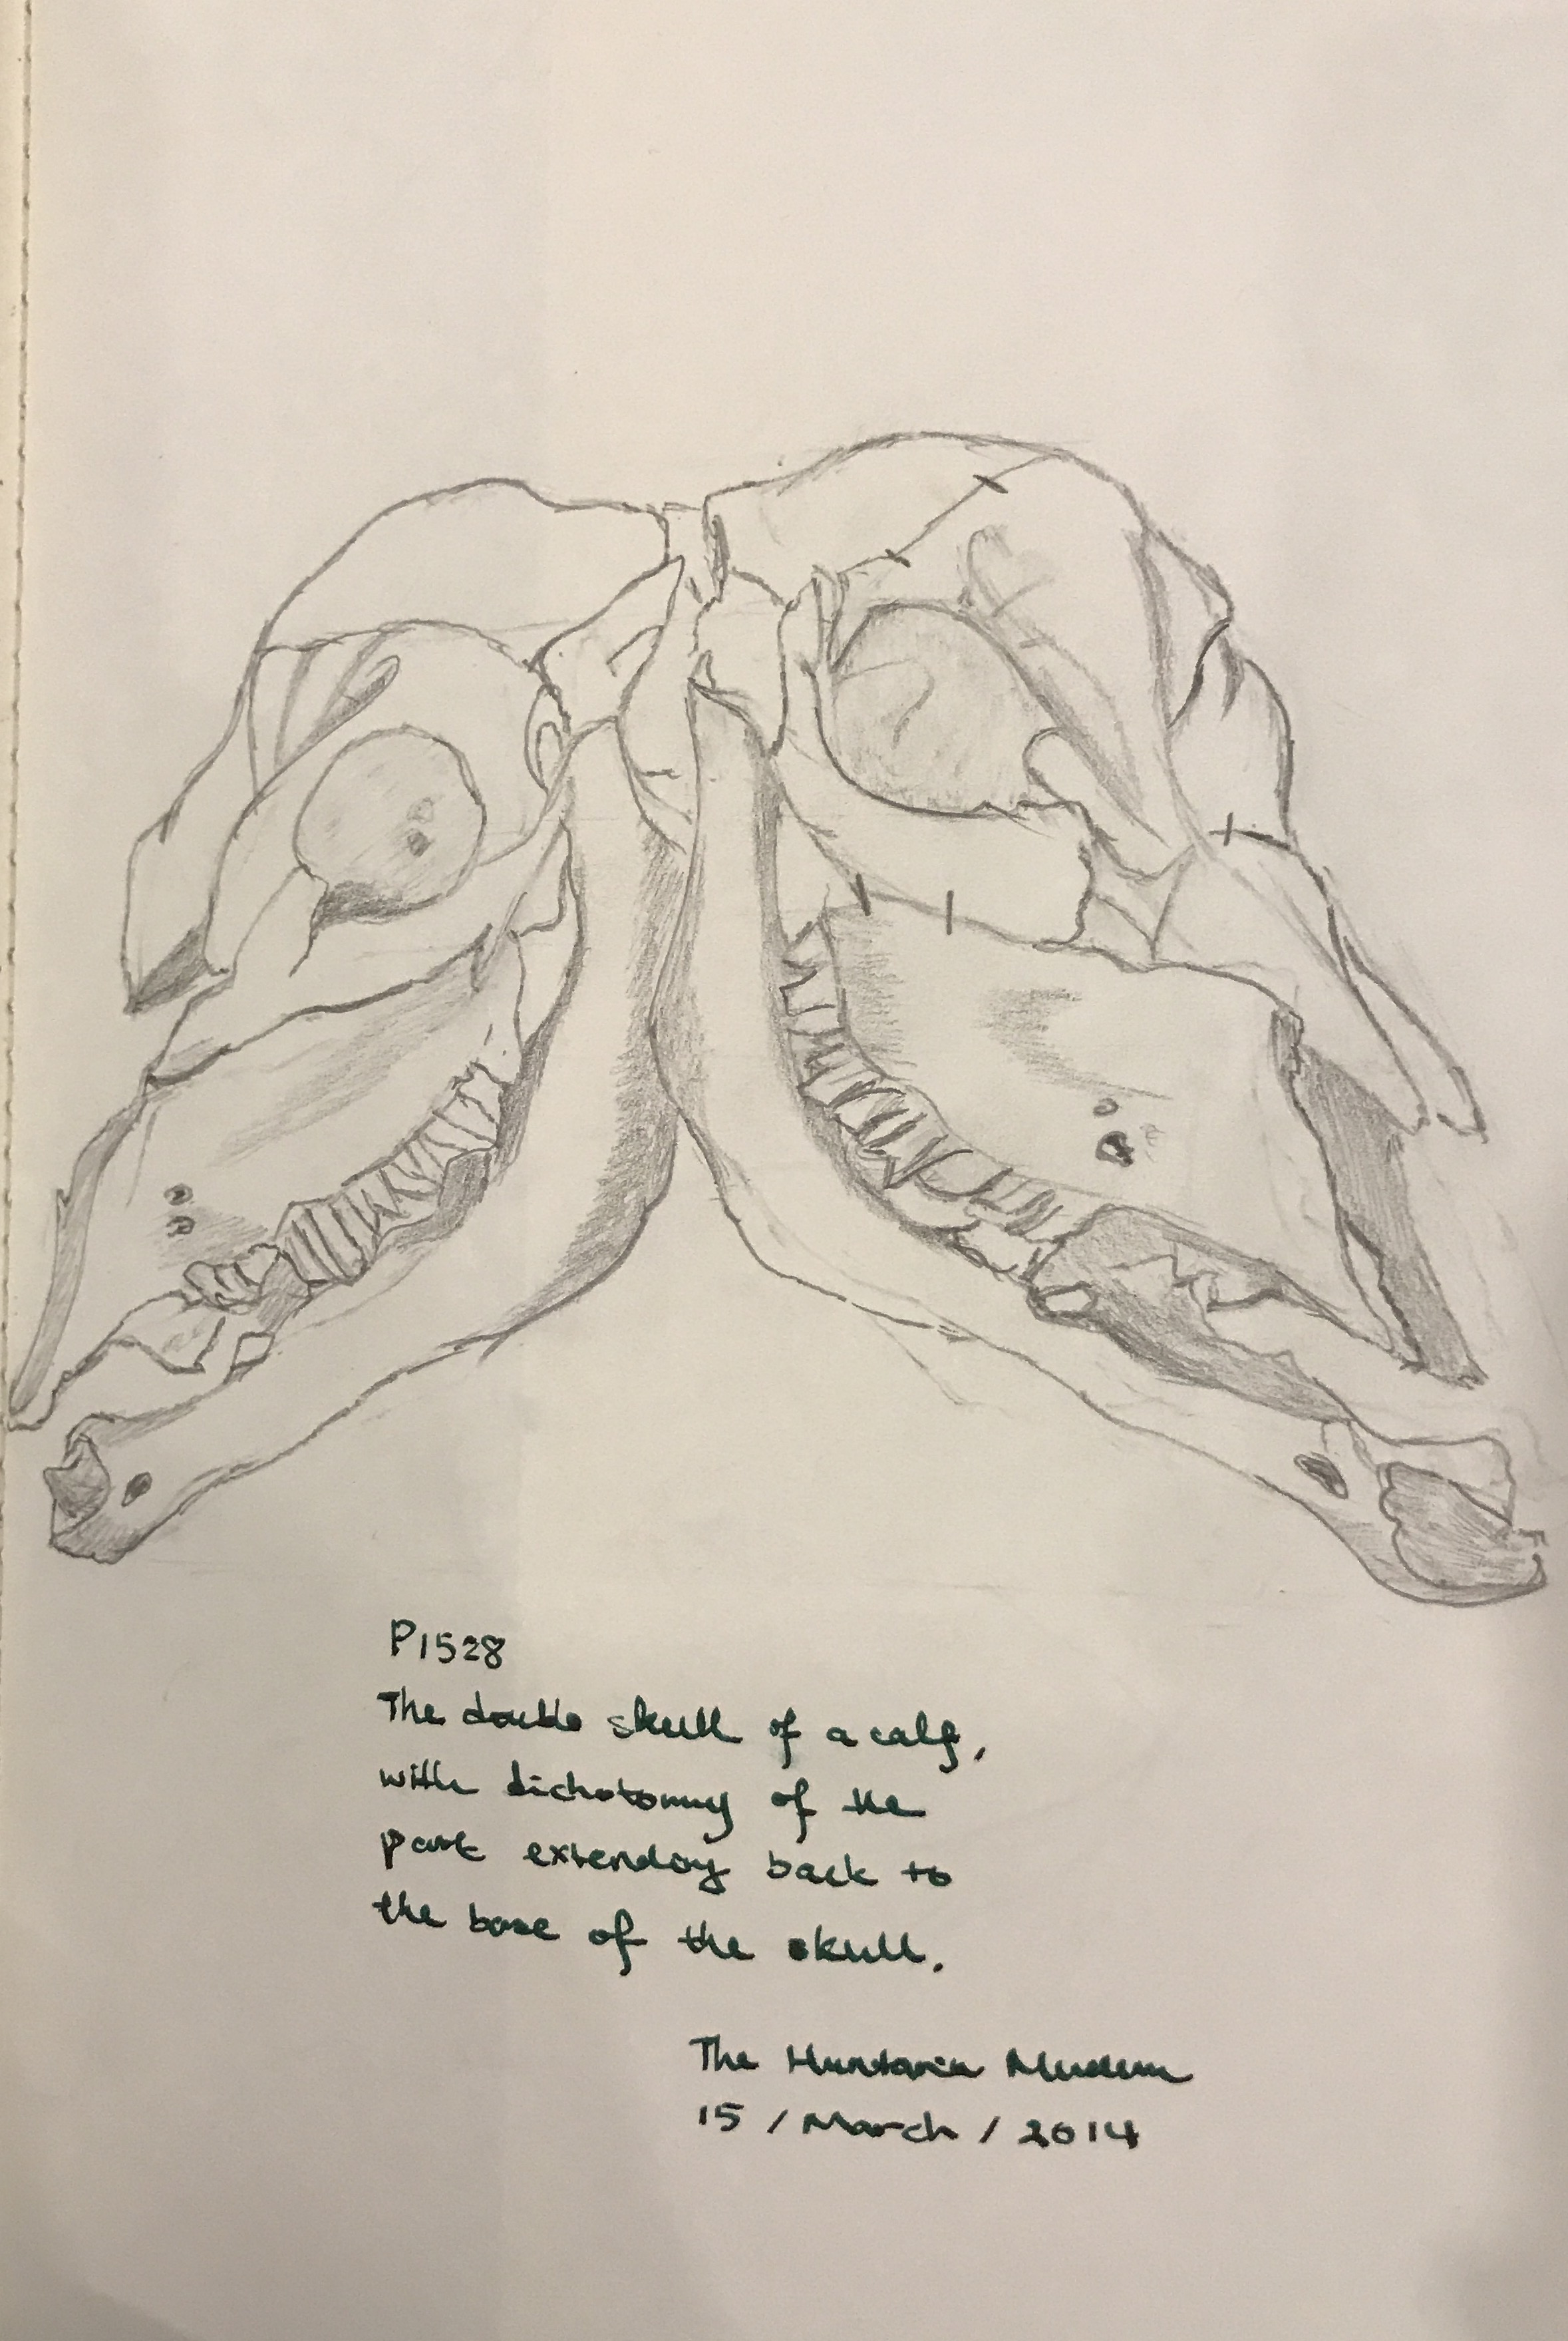 P1528
The double skull of a calf,
with dichotomy of the
part extending back to
the base of the skull.
The Hunterian Museum
15 / March / 2014